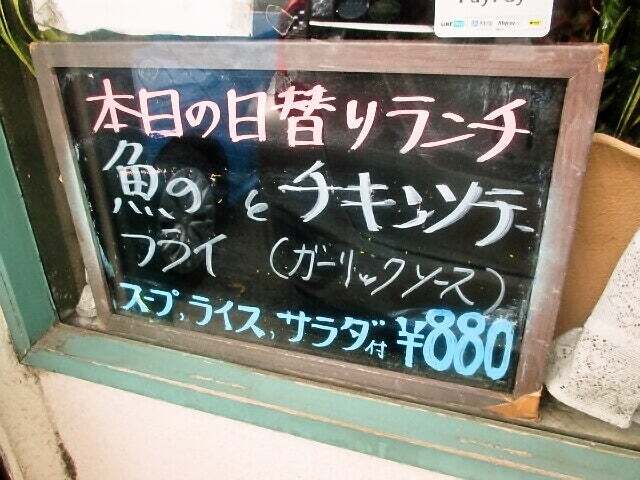 PayPay
LINE Pay
本日の日替りランチ
魚の と チキンソテー
フライ (ガーリックソース)
スープ、ライス、サラダ付 ¥880